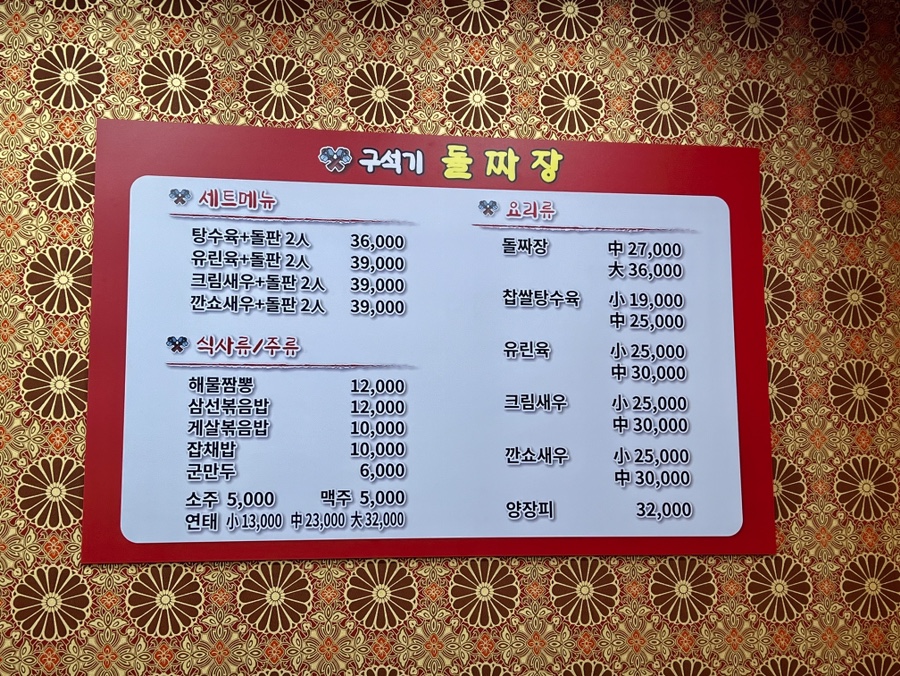 구석기 돌짜장
세트메뉴
탕수육+돌판 2人 36,000
유린육+돌판 2人 39,000
크림새우+돌판 2人 39,000
깐쇼새우+돌판 2人 39,000
식사류/주류
해물짬뽕 12,000
삼선볶음밥 12,000
게살볶음밥 10,000
잡채밥 10,000
군만두 6,000
소주 5,000 맥주 5,000
연태 小 13,000 中 23,000 大 32,000
요리류
돌짜장 中 27,000
大 36,000
찹쌀탕수육 小 19,000
中 25,000
유린육 小 25,000
中 30,000
크림새우 小 25,000
中 30,000
깐쇼새우 小 25,000
中 30,000
양장피 32,000